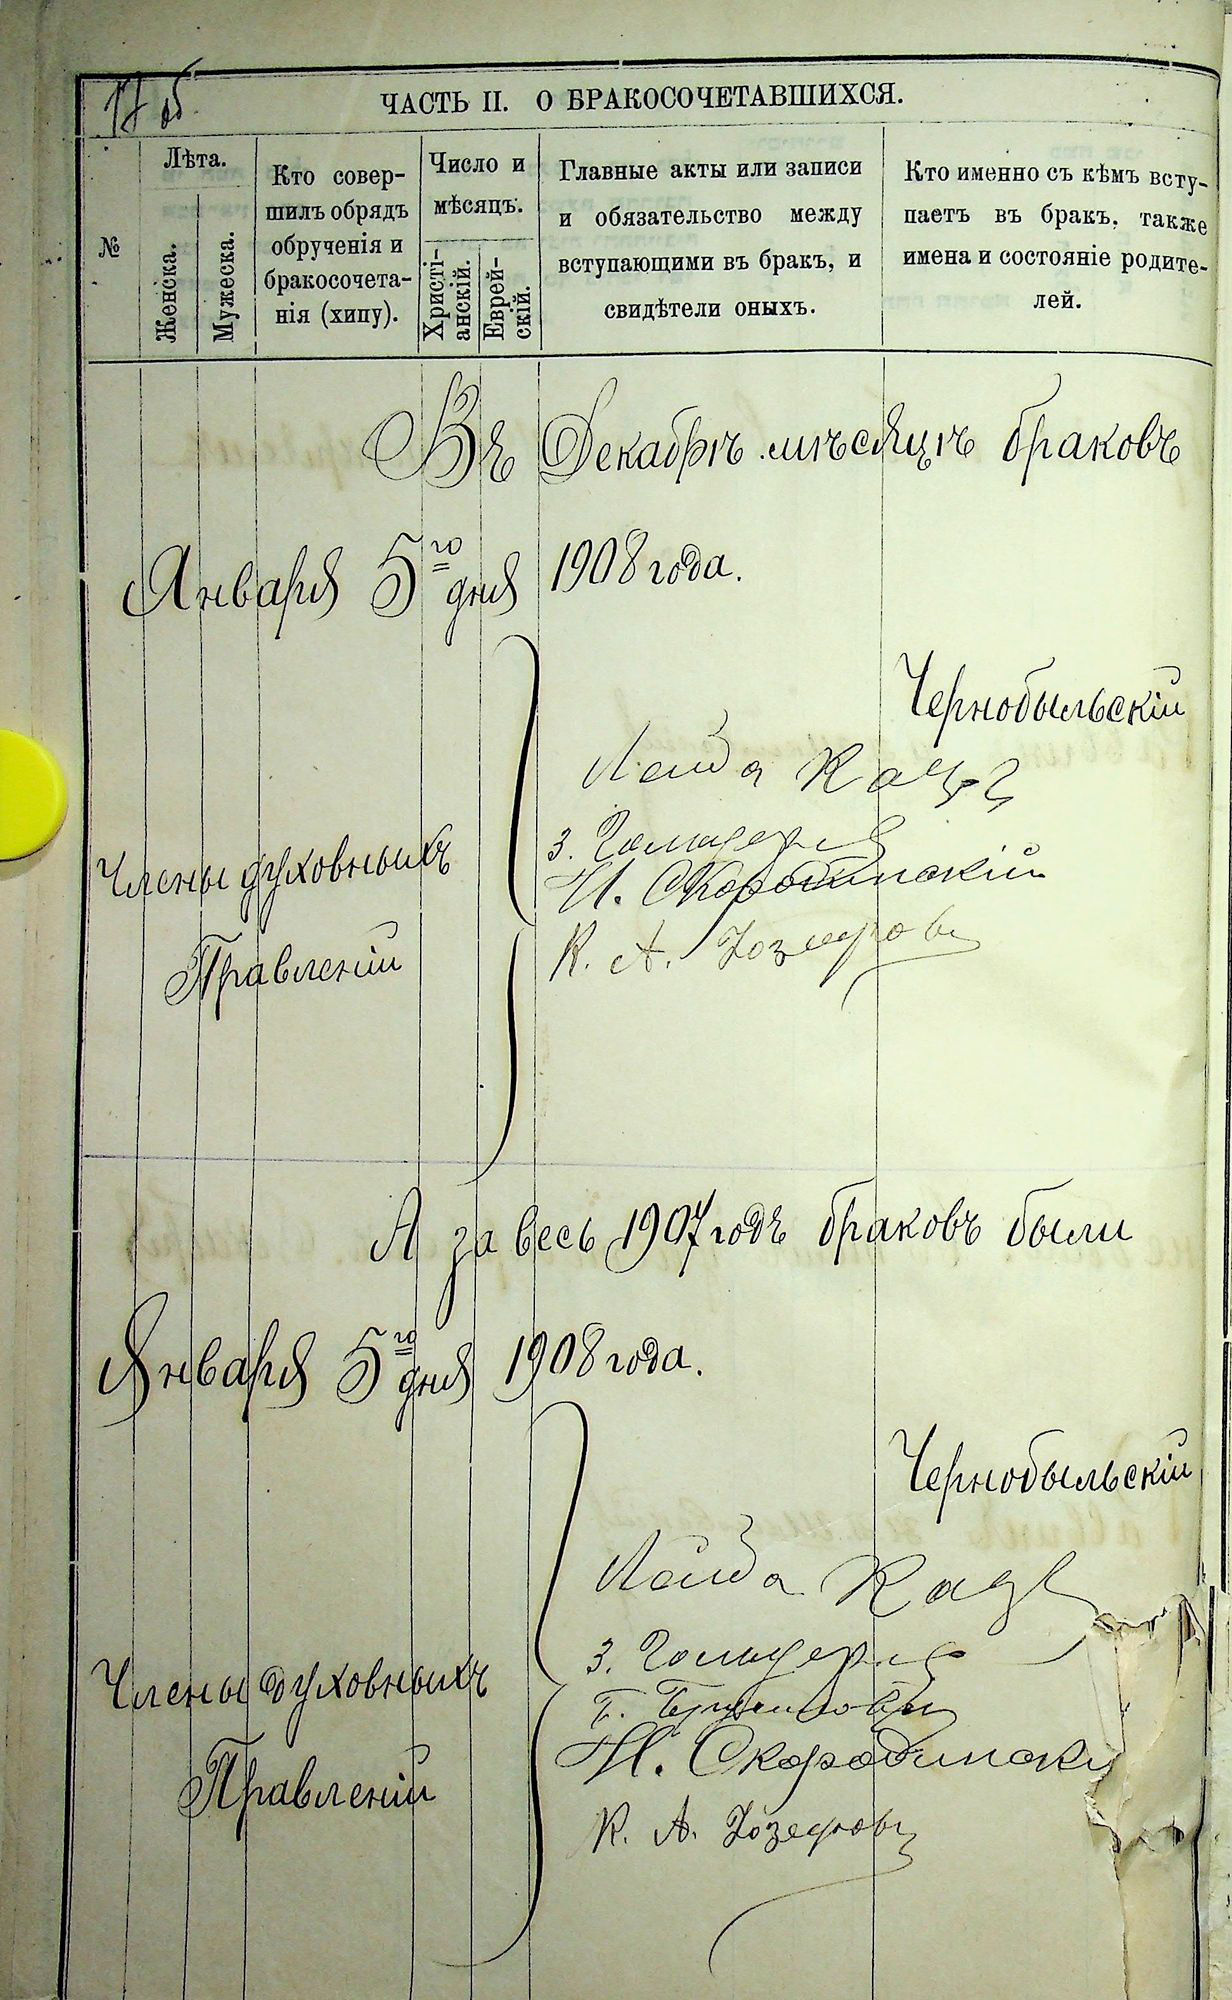 17 об
ЧАСТЬ II. О БРАКОСОЧЕТАВШИХСЯ.
№
Лѣта.
Женска.
Мужеска.
Кто совер-
шилъ обрядъ
обрученія и
бракосочета-
нія (хипу).
Число и
мѣсяцъ.
Христі-
анскій.
Еврей-
скій.
Главные акты или записи
и обязательство между
вступающими въ бракъ, и
свидѣтели оныхъ.
Кто именно съ кѣмъ всту-
паетъ въ бракъ, также
имена и состояніе родите-
лей.
Въ Декабрѣ мѣсяцѣ браковъ
Января 5го дня 1908 года.
Чернобыльскій
Члены духовныхъ
Правленій
Н. Скородинскій
К. А. Іозефовъ
А за весь 1907 годъ браковъ были
Января 5го дня 1908 года.
Чернобыльскій
Члены духовныхъ
Правленій
Н. Скородински
К. А. Іозефовъ